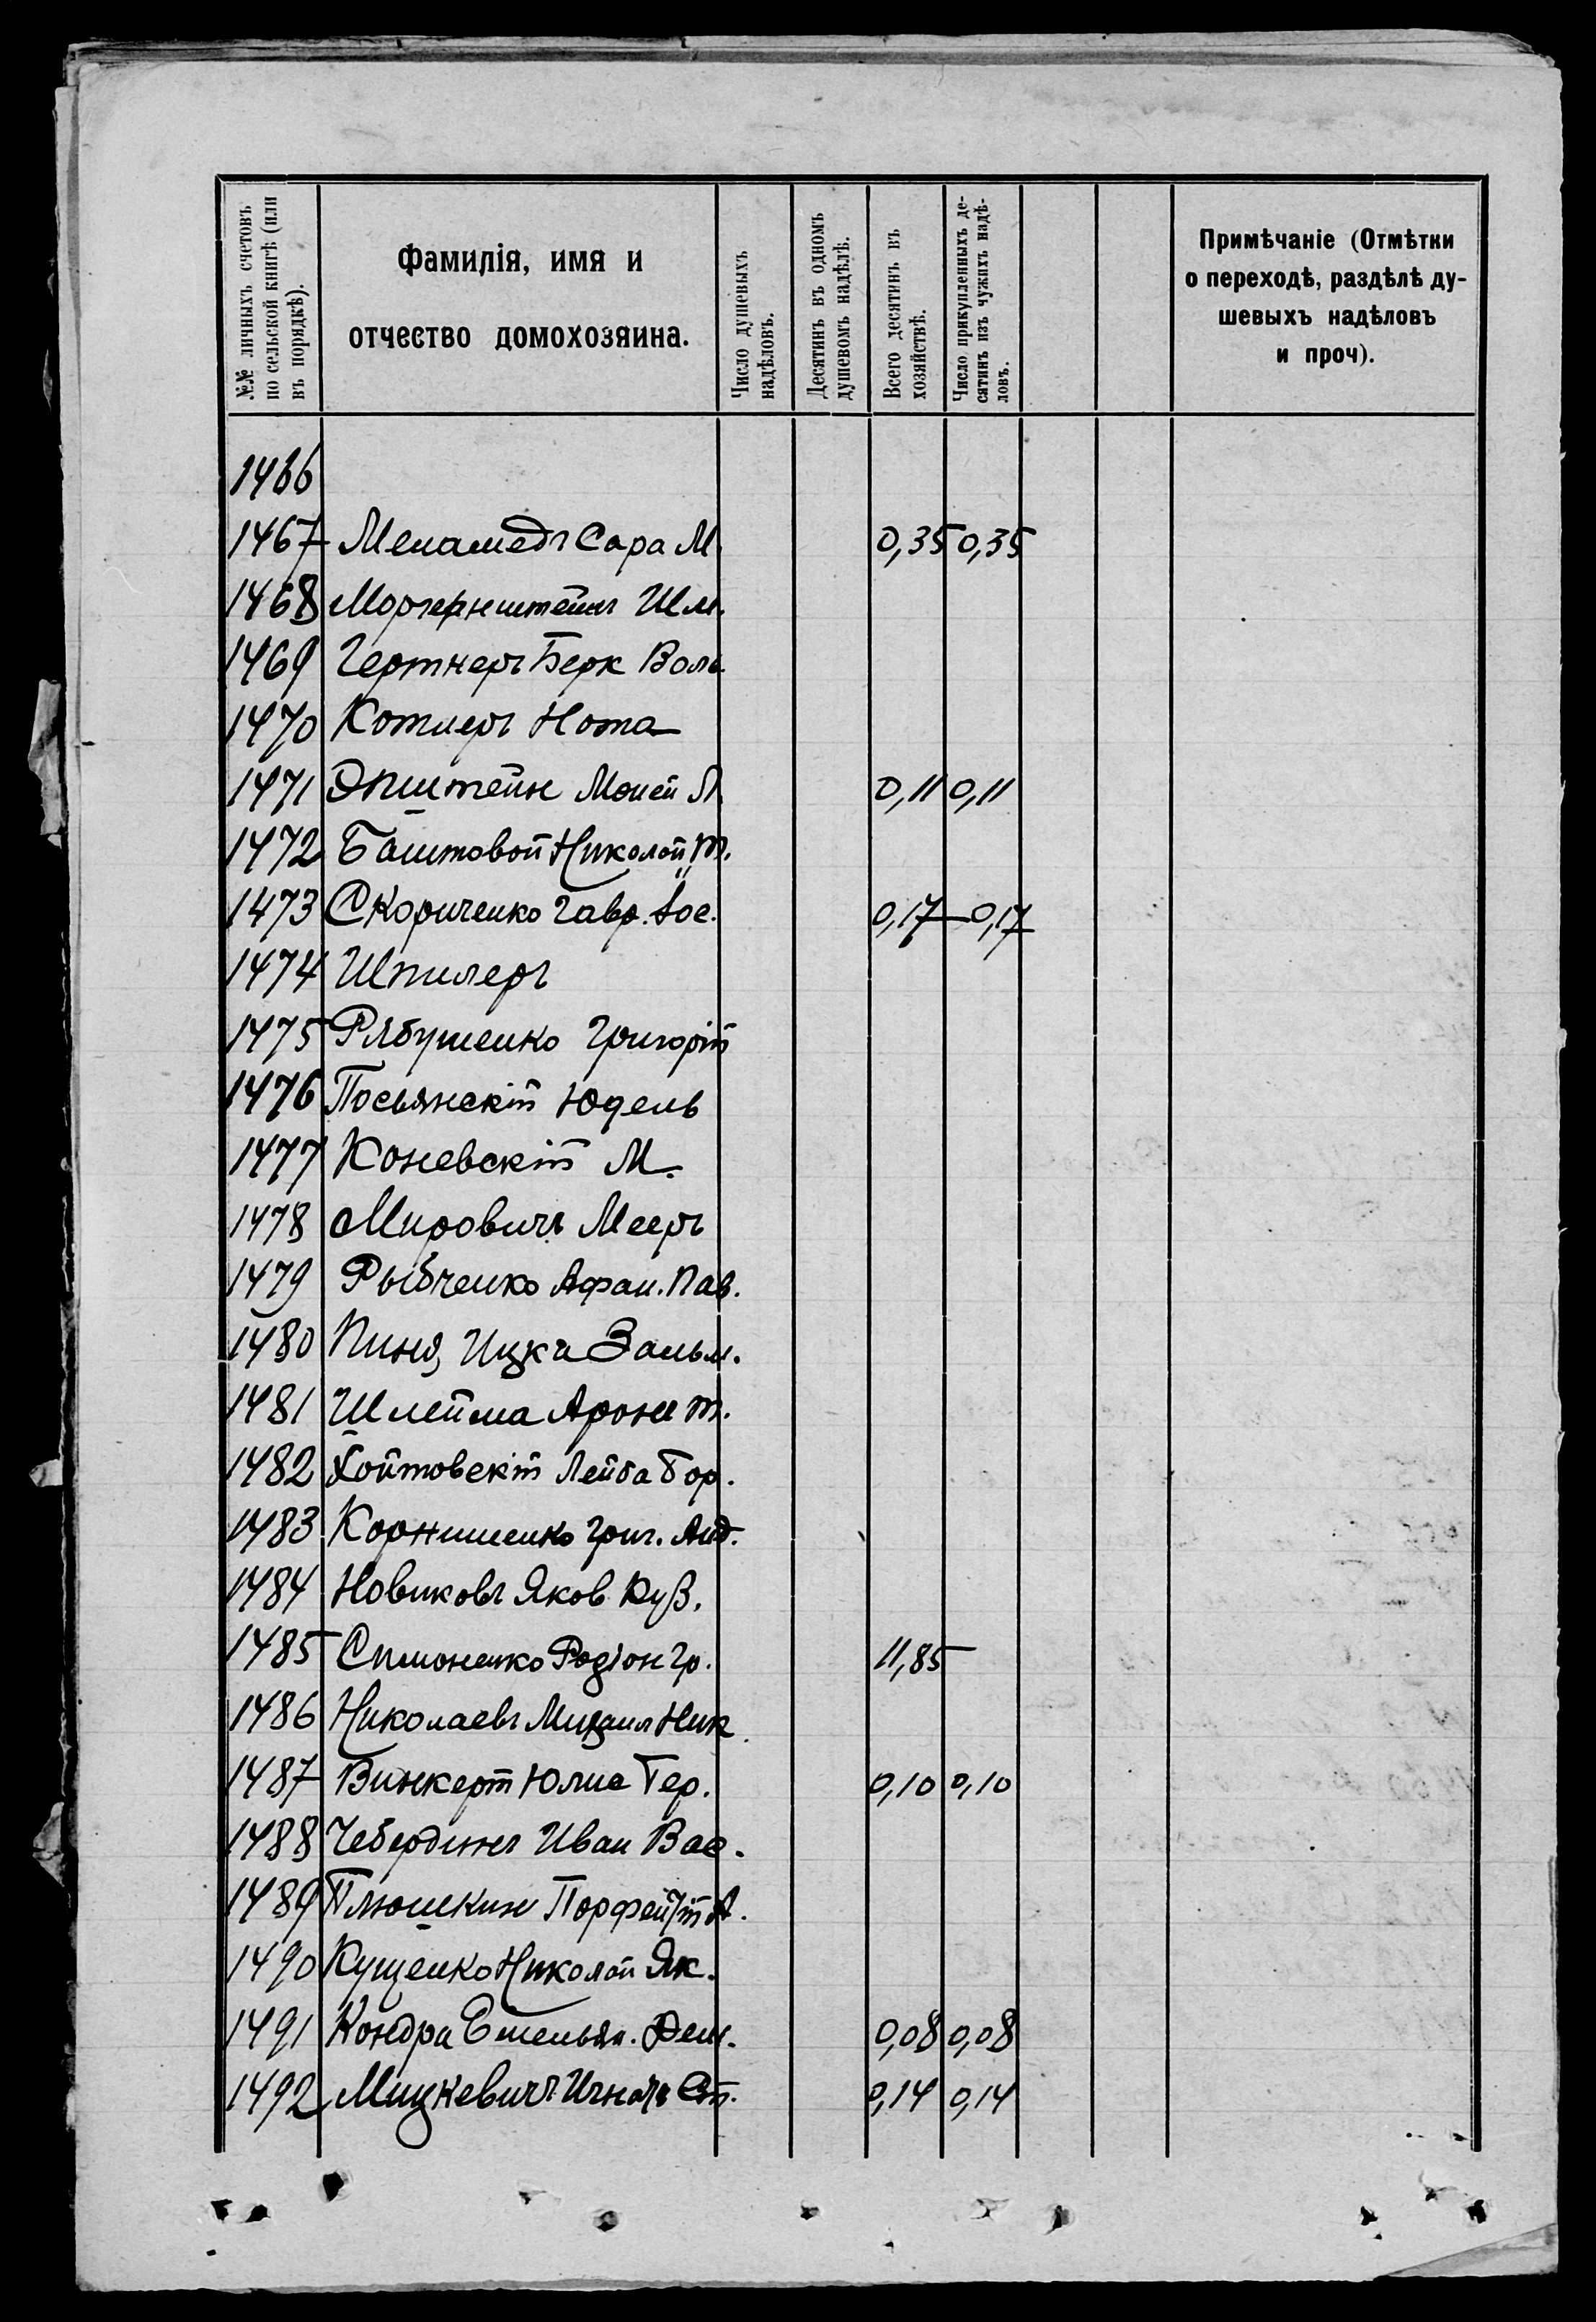 №№ личныхъ счетовъ
по сельской книгѣ (или
въ порядкѣ).
Фамилія, имя и
отчество домохозяина.
Число душевыхъ
надѣловъ.
Десятинъ въ одномъ
душевомъ надѣлѣ.
Всего десятинъ въ
хозяйствѣ.
Число прикупленныхъ де-
сятинъ изъ чужихъ надѣ-
ловъ.
Примѣчаніе (Отмѣтки
о переходѣ, раздѣлѣ ду-
шевыхъ надѣловъ
и проч).
1466
1467 Меламедъ Сара М. 0,35 0,35
1468 Моргернштейнъ Шм.
1469 Гертнеръ Берк Воль
1470 Котлеръ Нота
1471 Эпштейн Мошей Л 0,11 0,11
1472 Баштовой Николай М.
1473 Скориченко Гавр. 0,17 — 0,17
1474 Шпилеръ
1475 Рябушенко Григорій
1476 Посьянскій Юдель
1477 Коневскій М.
1478 Мировичъ Мееръ
1479 Рыбченко Афан. Пав.
1480 Пиня, Ицка Зальм.
1481 Шлейма Арон т.
1482 Хойтовскій Лейба Бор.
1483 Корнишенко Григ. Анд.
1484 Новиковъ Яков Куз.
1485 Симоненко Родіон Гр. 11,85
1486 Николаевъ Михаил Ник.
1487 Винкерт Юлис Гер. 0,10 0,10
1488 Чебердинъ Иван Вас.
1489 Плюшкин А.
1490 Кущенко Николай Як.
1491 Кондра Емельян. Дем. 0,08 0,08
1492 Мицкевичъ Игнатъ Ст. 0,14 0,14